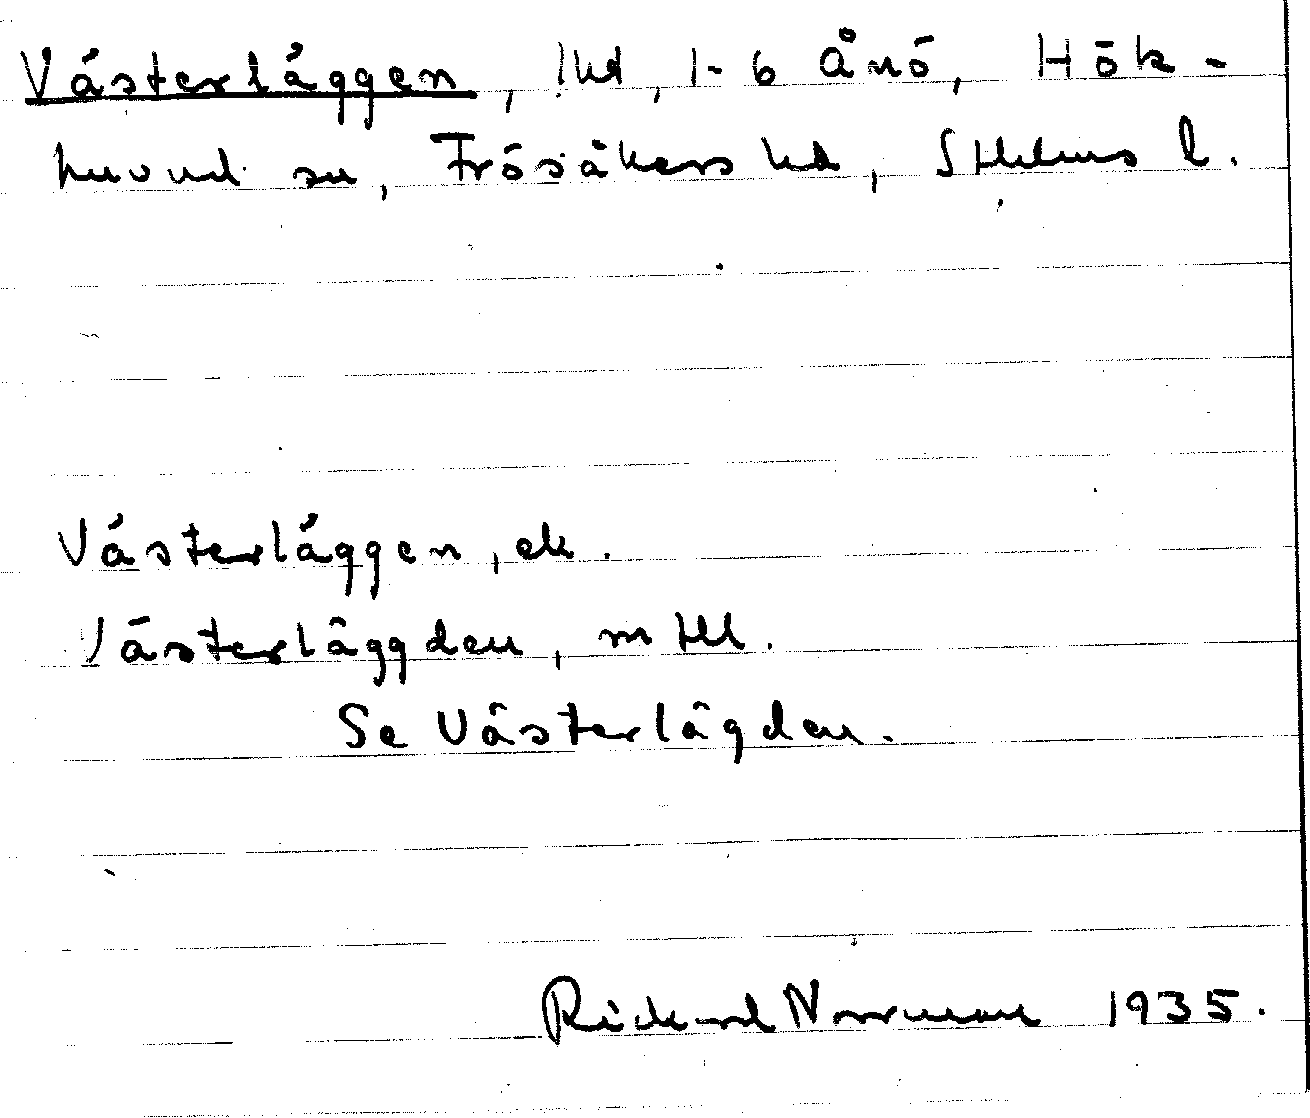 Västerläggen, lkd, 1-6 Ånö, Hök-
huvud sn, Frösåkers hd, Sthlms l.
Västerläggen, ek.
Västerläggden, m tHl.
Se Västerlägden.
Rickard Norrman 1935.